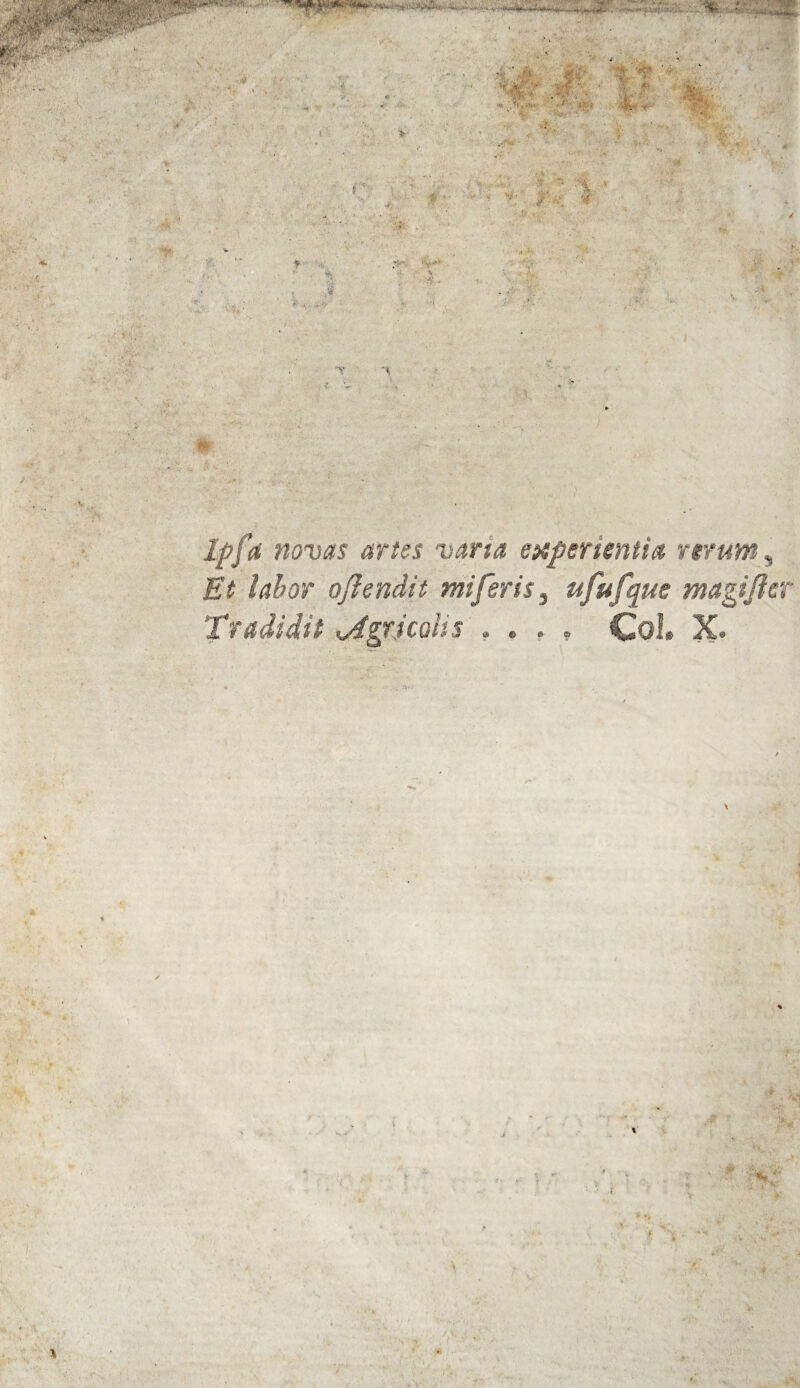 Ipſa novas artes varia experientia rerum,
Et labor oſtendit miſeris, uſuſque magiſter
Tradidit Agricolis . . . . Col. X.